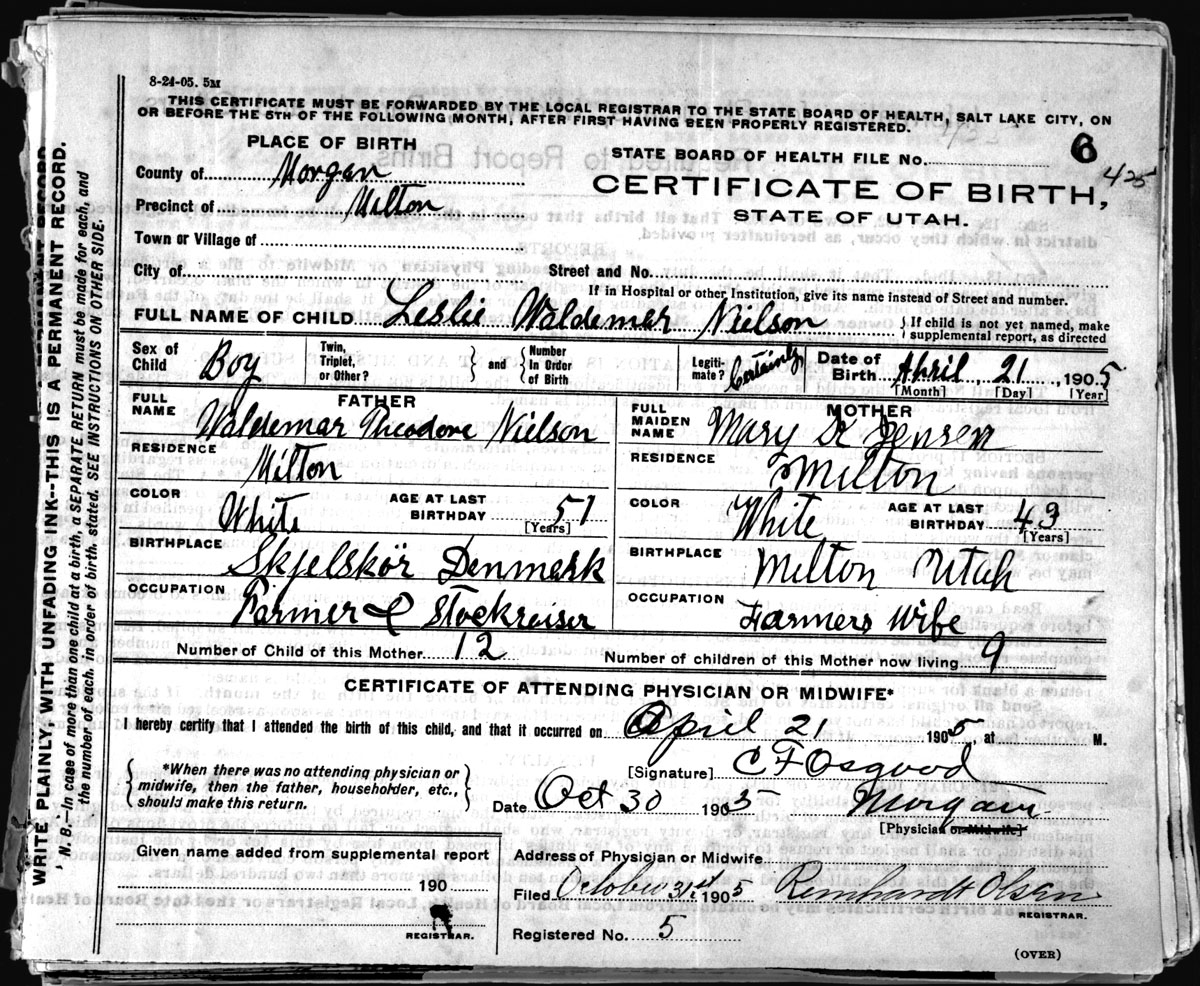 8-24-05. 5M
THIS CERTIFICATE MUST BE FORWARDED BY THE LOCAL REGISTRAR TO THE STATE BOARD OF HEALTH, SALT LAKE CITY, ON
OR BEFORE THE 5TH OF THE FOLLOWING MONTH, AFTER FIRST HAVING BEEN PROPERLY REGISTERED.
PLACE OF BIRTH
STATE BOARD OF HEALTH FILE NO. 6
425
County of Morgan
CERTIFICATE OF BIRTH,
Precinct of Milton
STATE OF UTAH.
Town or Village of
City of Street and No.
If in Hospital or other Institution, give its name instead of Street and number.
FULL NAME OF CHILD Leslie Waldemer Nielson
If child is not yet named, make
supplemental report, as directed
Sex of Child Boy
Twin, Triplet, or Other?
and
Number in Order of Birth
Legiti-mate? Certainly
Date of Birth April 21, 1905
[Month] [Day] [Year]
FATHER
FULL NAME Waldemar Theodore Nielson
RESIDENCE Milton
COLOR White
AGE AT LAST BIRTHDAY 51
[Years]
BIRTHPLACE Skjelskör Denmark
OCCUPATION Farmer & Stockraiser
MOTHER
FULL MAIDEN NAME Mary Jensen
RESIDENCE Milton
COLOR White
AGE AT LAST BIRTHDAY 43
[Years]
BIRTHPLACE Milton Utah
OCCUPATION Farmers Wife
Number of Child of this Mother 12 Number of children of this Mother now living 9
CERTIFICATE OF ATTENDING PHYSICIAN OR MIDWIFE*
I hereby certify that I attended the birth of this child, and that it occurred on April 21 1905, at M.
*When there was no attending physician or
midwife, then the father, householder, etc.,
should make this return.
[Signature] C F Osgood
Date Oct 30 1905 Morgan
[Physician or Midwife]
Given name added from supplemental report
190
REGISTRAR.
Address of Physician or Midwife
Filed October 31st 1905 Reinhardt Olsen
REGISTRAR.
Registered No. 5
(OVER)
WRITE PLAINLY, WITH UNFADING INK--THIS IS A PERMANENT RECORD.
N. B.—In case of more than one child at a birth, a SEPARATE RETURN must be made for each, and
the number of each, in order of birth, stated. SEE INSTRUCTIONS ON OTHER SIDE.